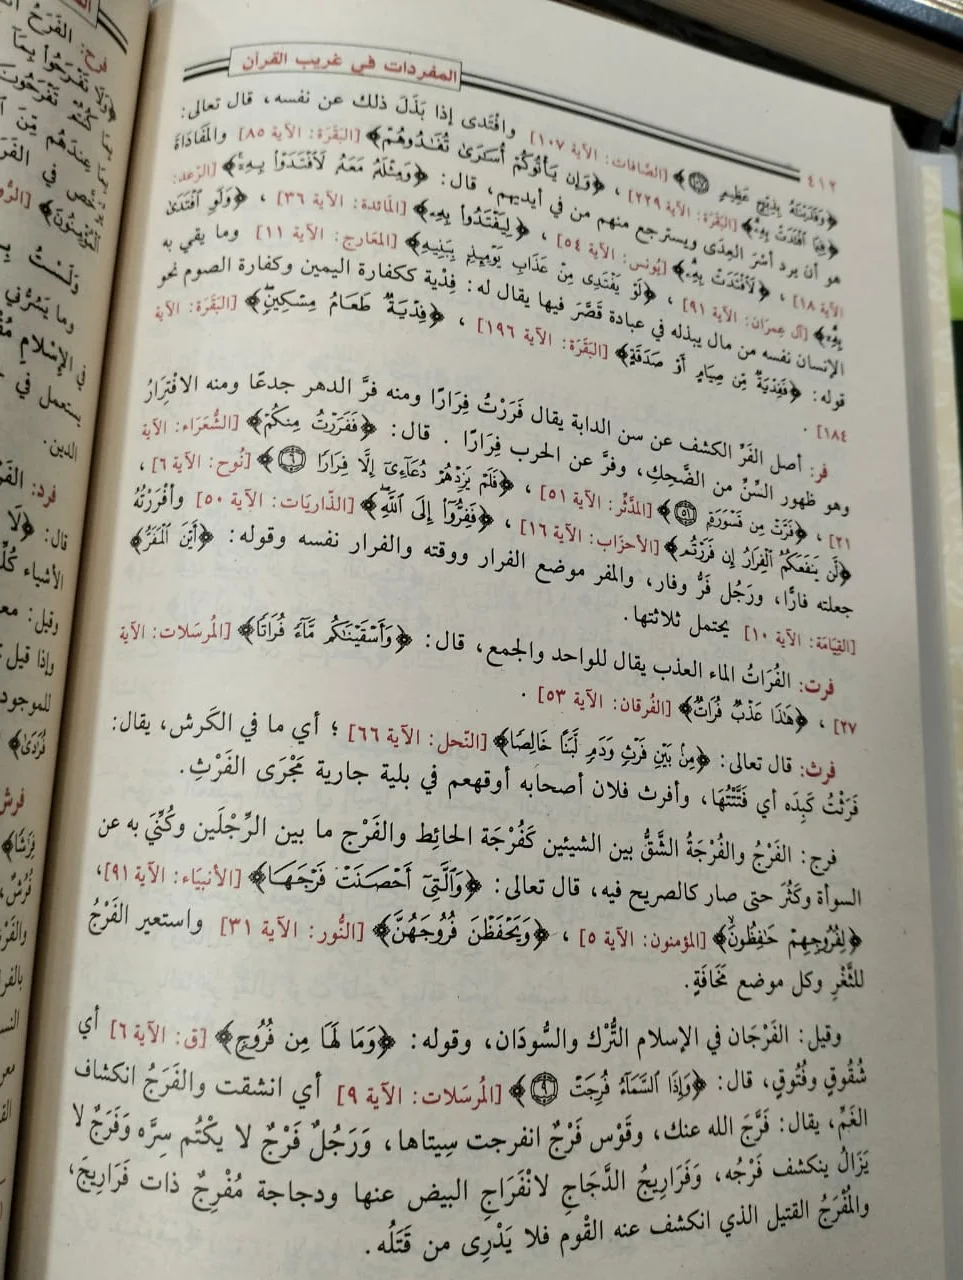 المفردات في غريب القرآن
٤١٢
﴿وَفَدَيْنَاهُ بِذِبْحٍ عَظِيمٍ ١٠٧﴾ [الصَّافات: الآية ١٠٧] وافْتَدى إذا بَذَلَ ذلك عن نفسه، قال تعالى:
﴿فِيمَا افْتَدَتْ بِهِ﴾ [البَقَرَة: الآية ٢٢٩] ، ﴿وَإِن يَأْتُوكُمْ أُسَارَىٰ تُفَادُوهُمْ﴾ [البَقَرَة: الآية ٨٥] والمُفَاداةُ
هو أن يرد أَسْرَ العِدَى ويسترجع منهم من في أيديهم، قال: ﴿وَمِثْلَهُ مَعَهُ لَافْتَدَوْا بِهِ﴾ [الرّعد:
الآية ١٨] ، ﴿لَافْتَدَتْ بِهِ﴾ [يُونس: الآية ٥٤] ، ﴿لِيَفْتَدُوا بِهِ﴾ [المَائدة: الآية ٣٦] ، ﴿وَلَوِ افْتَدَىٰ
بِهِ﴾ [آل عِمرَان: الآية ٩١] ، ﴿لَوْ يَفْتَدِى مِنْ عَذَابِ يَوْمِئِذٍ بِبَنِيهِ﴾ [المعَارج: الآية ١١] وما يقي به
الإنسان نفسه من مال يبذله في عبادة قَصَّرَ فيها يقال له: فِدْية ككفارة اليمين وكفارة الصوم نحو
قوله: ﴿فَفِدْيَةٌ مِّن صِيَامٍ أَوْ صَدَقَةٍ﴾ [البَقَرَة: الآية ١٩٦] ، ﴿فِدْيَةٌ طَعَامُ مِسْكِينٍ﴾ [البَقَرَة: الآية
١٨٤] .
فر: أصل الفَرِّ الكشف عن سن الدابة يقال فَرَرْتُ فِرَارًا ومنه فرَّ الدهر جدعًا ومنه الافْتِرَارُ
وهو ظهور السِّنِّ من الضَّحِكِ، وفرَّ عن الحرب فِرَارًا . قال: ﴿فَفَرَرْتُ مِنكُمْ﴾ [الشُّعَرَاء: الآية
٢١] ، ﴿فَرَّتْ مِن قَسْوَرَةٍ ٥١﴾ [المدَّثِّر: الآية ٥١] ، ﴿فَلَمْ يَزِدْهُمْ دُعَاءِى إِلَّا فِرَارًا ٦﴾ [نُوح: الآية ٦] ،
﴿لَن يَنفَعَكُمُ الْفِرَارُ إِن فَرَرْتُم﴾ [الأحزَاب: الآية ١٦] ، ﴿فَفِرُّوا إِلَى اللَّهِ﴾ [الذّاريَات: الآية ٥٠] وأَفْرَرْتُهُ
جعلته فارًّا، ورَجُل فَرٌّ وفار، والمفر موضع الفرار ووقته والفرار نفسه وقوله: ﴿أَيْنَ الْمَفَرُّ﴾
[القِيَامَة: الآية ١٠] يحتمل ثلاثتها.
فرت: الفُرَاتُ الماء العذب يقال للواحد والجمع، قال: ﴿وَأَسْقَيْنَاكُم مَّاءً فُرَاتًا﴾ [المُرسَلات: الآية
٢٧] ، ﴿هَذَا عَذْبٌ فُرَاتٌ﴾ [الفُرقان: الآية ٥٣] .
فرث: قال تعالى: ﴿مِنْ بَيْنِ فَرْثٍ وَدَمٍ لَّبَنًا خَالِصًا﴾ [النّحل: الآية ٦٦] ؛ أي ما في الكَرش، يقال:
فَرَثْتُ كَبِدَه أي فَتَّتُّها، وأفرث فلان أصحابه أوقعهم في بلية جارية مَجْرَى الفَرْثِ.
فرج: الفَرْجُ والفُرْجَةُ الشَّقُّ بين الشيئين كَفُرْجَة الحائِط والفَرْج ما بين الرِّجْلَين وكُنِّيَ به عن
السوأة وكَثُرَ حتى صار كالصريح فيه، قال تعالى: ﴿وَالَّتِى أَحْصَنَتْ فَرْجَهَا﴾ [الأنبيَاء: الآية ٩١]،
﴿لِفُرُوجِهِمْ حَافِظُونَ﴾ [المؤمنون: الآية ٥] ، ﴿وَيَحْفَظْنَ فُرُوجَهُنَّ﴾ [النُّور: الآية ٣١] واستعير الفَرْجُ
للثَّغْرِ وكل موضع مَخَافَةٍ.
وقيل: الفَرْجَان في الإسلام التُّرْك والسُّودَان، وقوله: ﴿وَمَا لَهَا مِن فُرُوجٍ﴾ [ق: الآية ٦] أي
شُقُوقٍ وفُتُوقٍ، قال: ﴿وَإِذَا السَّمَاءُ فُرِجَتْ ٩﴾ [المُرسَلات: الآية ٩] أي انشقت والفَرَجُ انكشاف
الغَمِّ، يقال: فَرَّجَ الله عنك، وقَوْس فَرْجٌ انفرجت سِيتاها، ورَجُلٌ فَرْجٌ لا يكْتُم سِرَّه وَفَرَجٌ لا
يَزَالُ ينكشف فَرْجُه، وَفَرَارِيجُ الدَّجَاجِ لانْفَرَاجِ البيض عنها ودجاجة مُفْرِجٌ ذات فَرَارِيجَ،
والمُفْرَجُ القتيل الذي انكشف عنه القْوم فلا يَدْرِى من قَتَلَه.